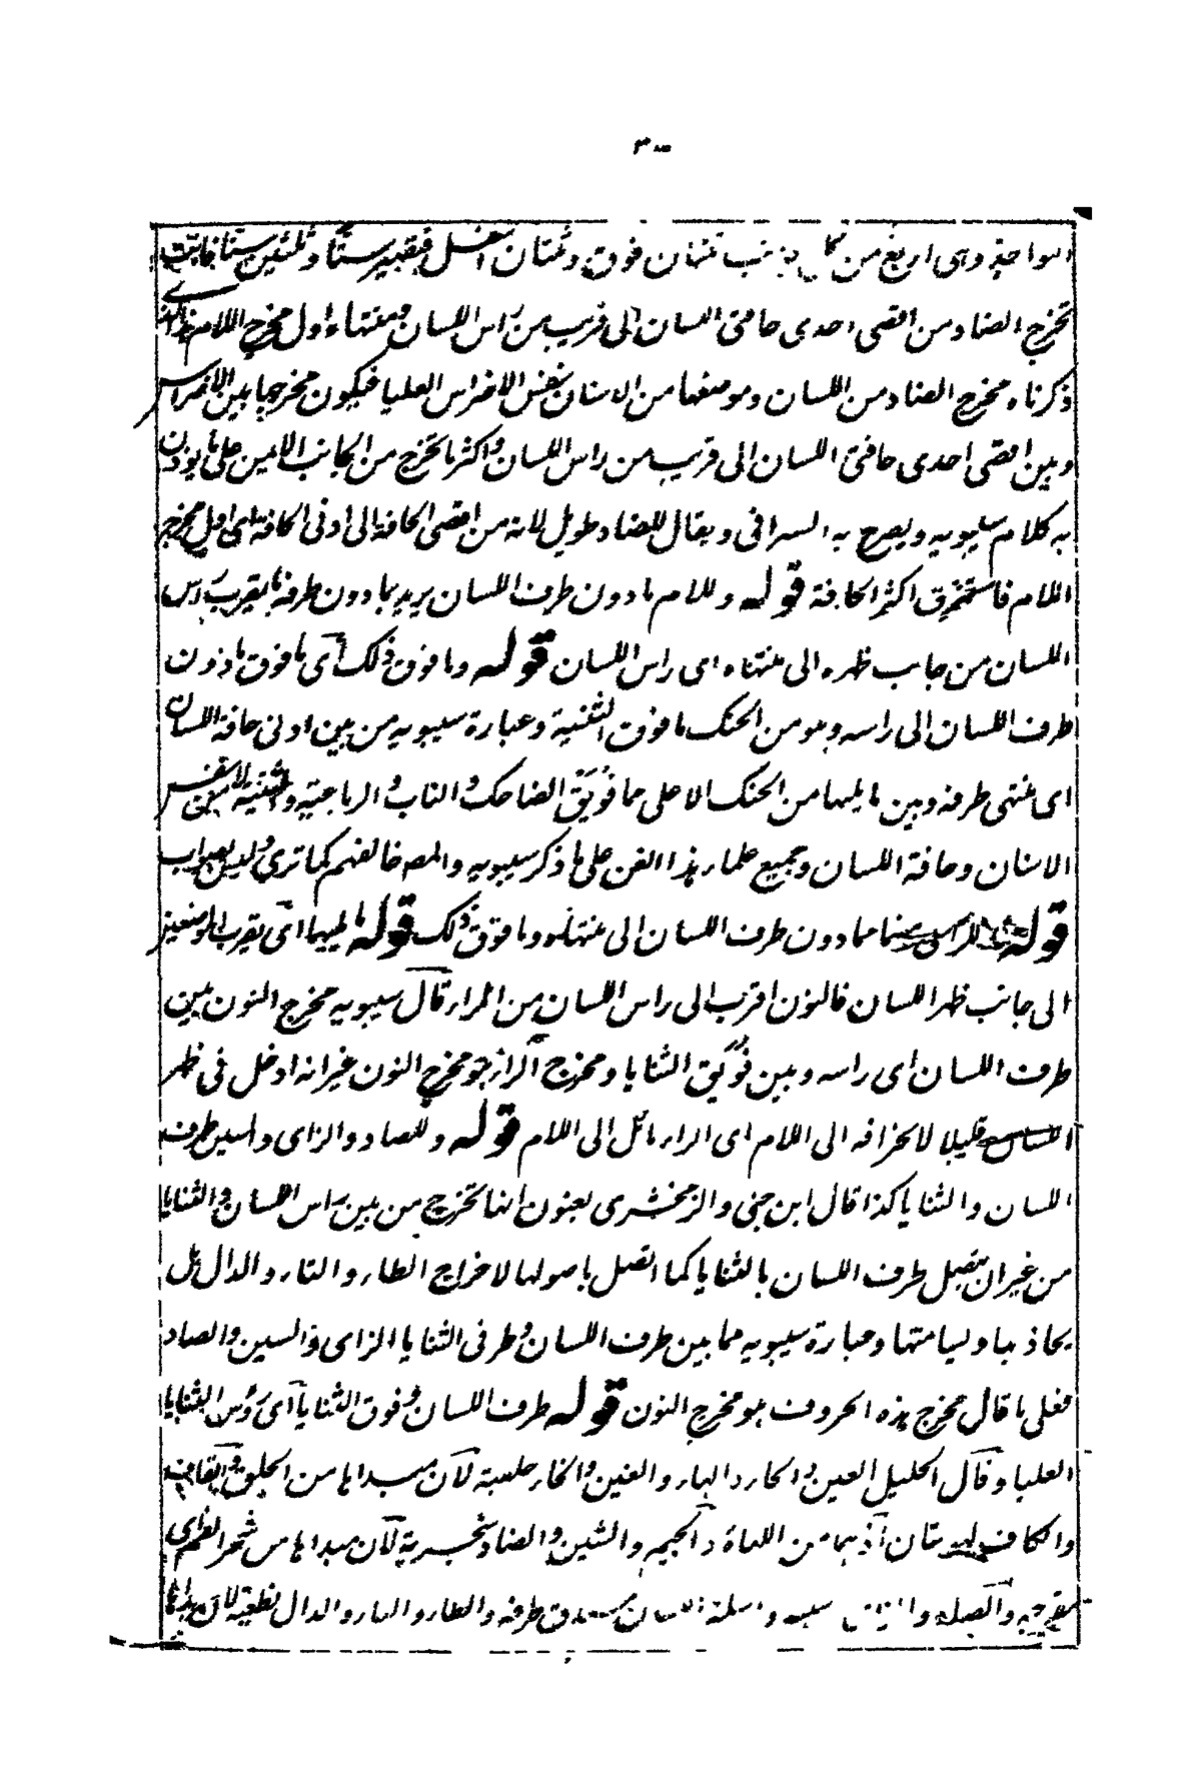 ٣٠٠
النواجذ وهى اربع من كل جانب ثنتان فوق وثنتان اسفل فيصير ستا وثلثين سنا
تخرج الضاد من اقصى احدى حافتى اللسان الى قريب من راس اللسان ومنتهاه اول مخرج اللام
ذكرناه مخرج الضاد من اللسان وموضعها من الاسنان نفس الاضراس العليا فيكون مخرجها بين الاضراس
وبين اقصى احدى حافتى اللسان الى قريب من راس اللسان واكثر ما تخرج من الجانب الايمن على ما يوذن
به كلام سيبويه ويصرح به السيرافى ويقال للضاد طويل لانه من اقصى الحافة الى ادنى الحافة اى اول مخرج
اللام فاستغرق اكثر الحافة قوله وللام ما دون طرف اللسان يريد بما دون طرفه ما يقرب راس
اللسان من جانب ظهره الى منتهاه اى راس اللسان قوله وما فوق ذلك اى ما فوق ما دون
طرف اللسان الى راسه وهو من الحنك ما فوق الثنية وعبارة سيبويه من بين ادنى حافة اللسان
اى منتهى طرفه وبين ما يليها من الحنك الاعلى مما فويق الضاحك والناب والرباعية والثنية
الاسنان وحافة اللسان وجميع علماء هذا الفن على ما ذكر سيبويه والمصـ خالفهم كما ترى وليس بصواب
قوله منهما ما دون طرف اللسان الى منتهاه وما فوق ذلك قوله ما يليهما اى بقرب الموضعين
الى جانب ظهر اللسان فالنون اقرب الى راس اللسان من الراء قال سيبويه مخرج النون بين
طرف اللسان اى راسه وبين فويق الثنايا ومخرج الراء هو مخرج النون غير انه ادخل فى ظهر
اللسان قليلا لانحرافه الى اللام اى الراء مائل الى اللام قوله وللصاد والزاى والسين طرف
اللسان والثنايا كذا قال ابن جنى والزمخشرى يعنون انها تخرج من بين راس اللسان والثنايا
من غير ان يتصل طرف اللسان بالثنايا كما اتصل باصولها لاخراج الطاء والتاء والدال بل
يحاذيها ويسامتها وعبارة سيبويه مما بين طرف اللسان وطرفى الثنايا الزاى والسين والصاد
فعلى ما قال مخرج هذه الحروف هو مخرج النون قوله طرف اللسان وفوق الثنايا اى رؤس الثنايا
العليا وقال الخليل العين والحاء والهاء والغين والخاء حلقية لان مبداها من الحلق والقاف
والكاف لهويتان اذ هما من اللهاة والجيم والشين والضاد شجرية لان مبداها من شجر الفم اى
مفرجه والصاد والزاى والسين اسلية اللسان مستدق طرفه والطاء والتاء والدال نطعية لان مبداها